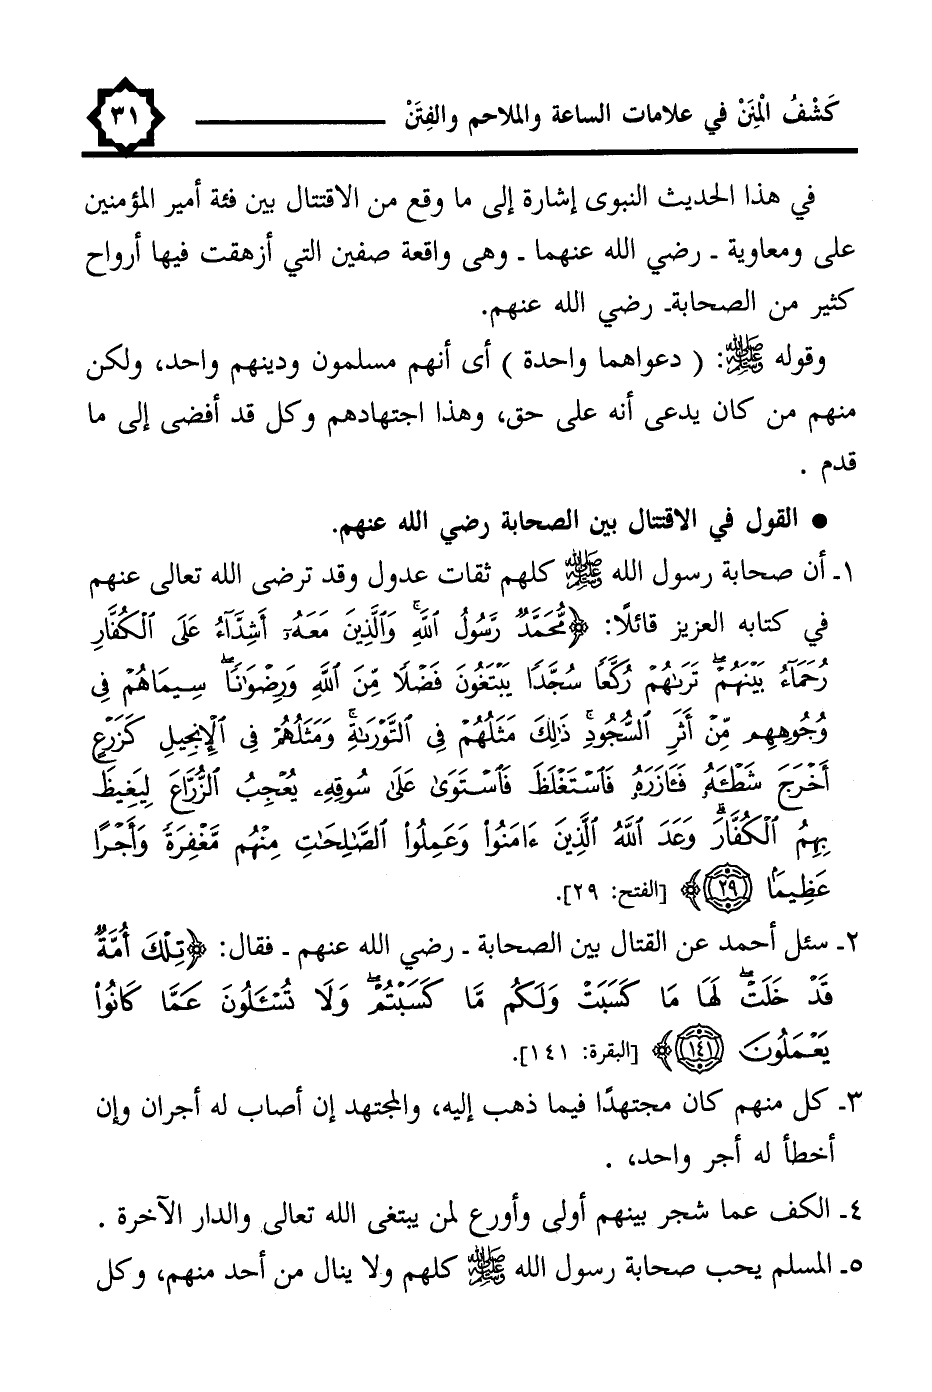 كَشْفُ الْمِنَنْ في علامات الساعة والملاحم والفِتَنْ ٣١
في هذا الحديث النبوى إشارة إلى ما وقع من الاقتتال بين فئة أمير المؤمنين
على ومعاوية ـ رضي الله عنهما ـ وهى واقعة صفين التي أزهقت فيها أرواح
كثير من الصحابةـ رضي الله عنهم.
وقوله ﷺ: ( دعواهما واحدة ) أى أنهم مسلمون ودينهم واحد، ولكن
منهم من كان يدعى أنه على حق، وهذا اجتهادهم وكل قد أفضى إلى ما
قدم .
● القول في الاقتتال بين الصحابة رضي الله عنهم.
١ـ أن صحابة رسول الله ﷺ كلهم ثقات عدول وقد ترضى الله تعالى عنهم
في كتابه العزيز قائلًا: ﴿مُّحَمَّدٌ رَّسُولُ ٱللَّهِ ۚ وَٱلَّذِينَ مَعَهُۥٓ أَشِدَّآءُ عَلَى ٱلْكُفَّارِ
رُحَمَآءُ بَيْنَهُمْ ۖ تَرَىٰهُمْ رُكَّعًا سُجَّدًا يَبْتَغُونَ فَضْلًا مِّنَ ٱللَّهِ وَرِضْوَٰنًا ۖ سِيمَاهُمْ فِى
وُجُوهِهِم مِّنْ أَثَرِ ٱلسُّجُودِ ۚ ذَٰلِكَ مَثَلُهُمْ فِى ٱلتَّوْرَىٰةِ ۚ وَمَثَلُهُمْ فِى ٱلْإِنجِيلِ كَزَرْعٍ
أَخْرَجَ شَطْـَٔهُۥ فَـَٔازَرَهُۥ فَٱسْتَغْلَظَ فَٱسْتَوَىٰ عَلَىٰ سُوقِهِۦ يُعْجِبُ ٱلزُّرَّاعَ لِيَغِيظَ
بِهِمُ ٱلْكُفَّارَ ۗ وَعَدَ ٱللَّهُ ٱلَّذِينَ ءَامَنُوا۟ وَعَمِلُوا۟ ٱلصَّٰلِحَٰتِ مِنْهُم مَّغْفِرَةً وَأَجْرًا
عَظِيمًۢا ٢٩﴾ [الفتح: ٢٩].
٢ـ سئل أحمد عن القتال بين الصحابة ـ رضي الله عنهم ـ فقال: ﴿تِلْكَ أُمَّةٌ
قَدْ خَلَتْ ۖ لَهَا مَا كَسَبَتْ وَلَكُم مَّا كَسَبْتُمْ ۖ وَلَا تُسْـَٔلُونَ عَمَّا كَانُوا۟
يَعْمَلُونَ ١٤١﴾ [البقرة: ١٤١].
٣ـ كل منهم كان مجتهدًا فيما ذهب إليه، والمجتهد إن أصاب له أجران وإن
أخطأ له أجر واحد، .
٤ـ الكف عما شجر بينهم أولى وأورع لمن يبتغى الله تعالى والدار الآخرة .
٥ـ المسلم يحب صحابة رسول الله ﷺ كلهم ولا ينال من أحد منهم، وكل